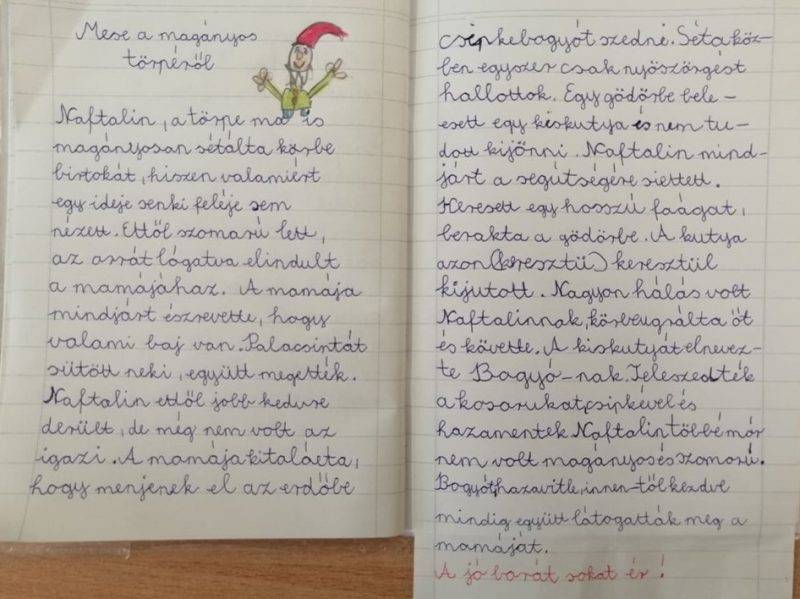 Mese a magányos
törpéről
Naftalin, a törpe ma is
magányosan sétálta körbe
birtokát, hiszen valamiért
egy ideje senki feléje sem
nézett. Ettől szomorú lett,
az orrát lógatva elindult
a mamájához. A mamája
mindjárt észrevette, hogy
valami baj van. Palacsintát
sütött neki, együtt megették.
Naftalin ettől jobb kedvre
derült, de még nem volt az
igazi. A mamája kitalálta,
hogy menjenek el az erdőbe
csipkebogyót szedni. Séta köz-
ben egyszer csak nyöszörgést
hallottak. Egy gödörbe bele-
esett egy kiskutya és nem tu-
dott kijönni. Naftalin mind-
járt a segítségére siettett.
Keresett egy hosszú faágat,
berakta a gödörbe. A kutya
azon (keresztü) keresztül
kijutott. Nagyon hálás volt
Naftalinnak, körbeugrálta őt
és követte. A kiskutyát elnevez-
te Bogyó-nak. Teleszedték
a kosarukat csipkével és
hazamentek. Naftalin többé már
nem volt magányos és szomorú.
Bogyót hazavitte, innen-től kezdve
mindig együtt látogatták meg a
mamáját.
A jó barát sokat ér!